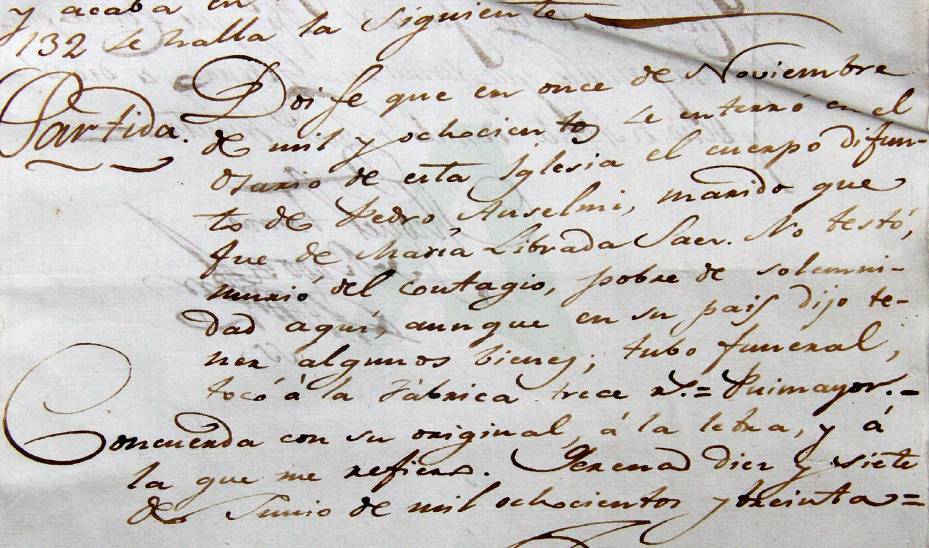 y acaba en
132 se halla la siguiente
Partida. Doi fe que en once de Noviembre
de mil y ochocientos se enterró en el
osario de esta Iglesia el cuerpo difun-
to de Pedro Anselmi, marido que
fue de Maria Librada Saer. No testó,
murió del contagio, pobre de solemni-
dad aquí, aunque en su pais dijo te-
ner algunos bienes; tubo funeral,
tocó á la Fábrica trece rs.= Puimayor.=
Concuerda con su original, á la letra, y á
la que me refiero. Gerena diez y siete
de Junio de mil ochocientos y treinta=